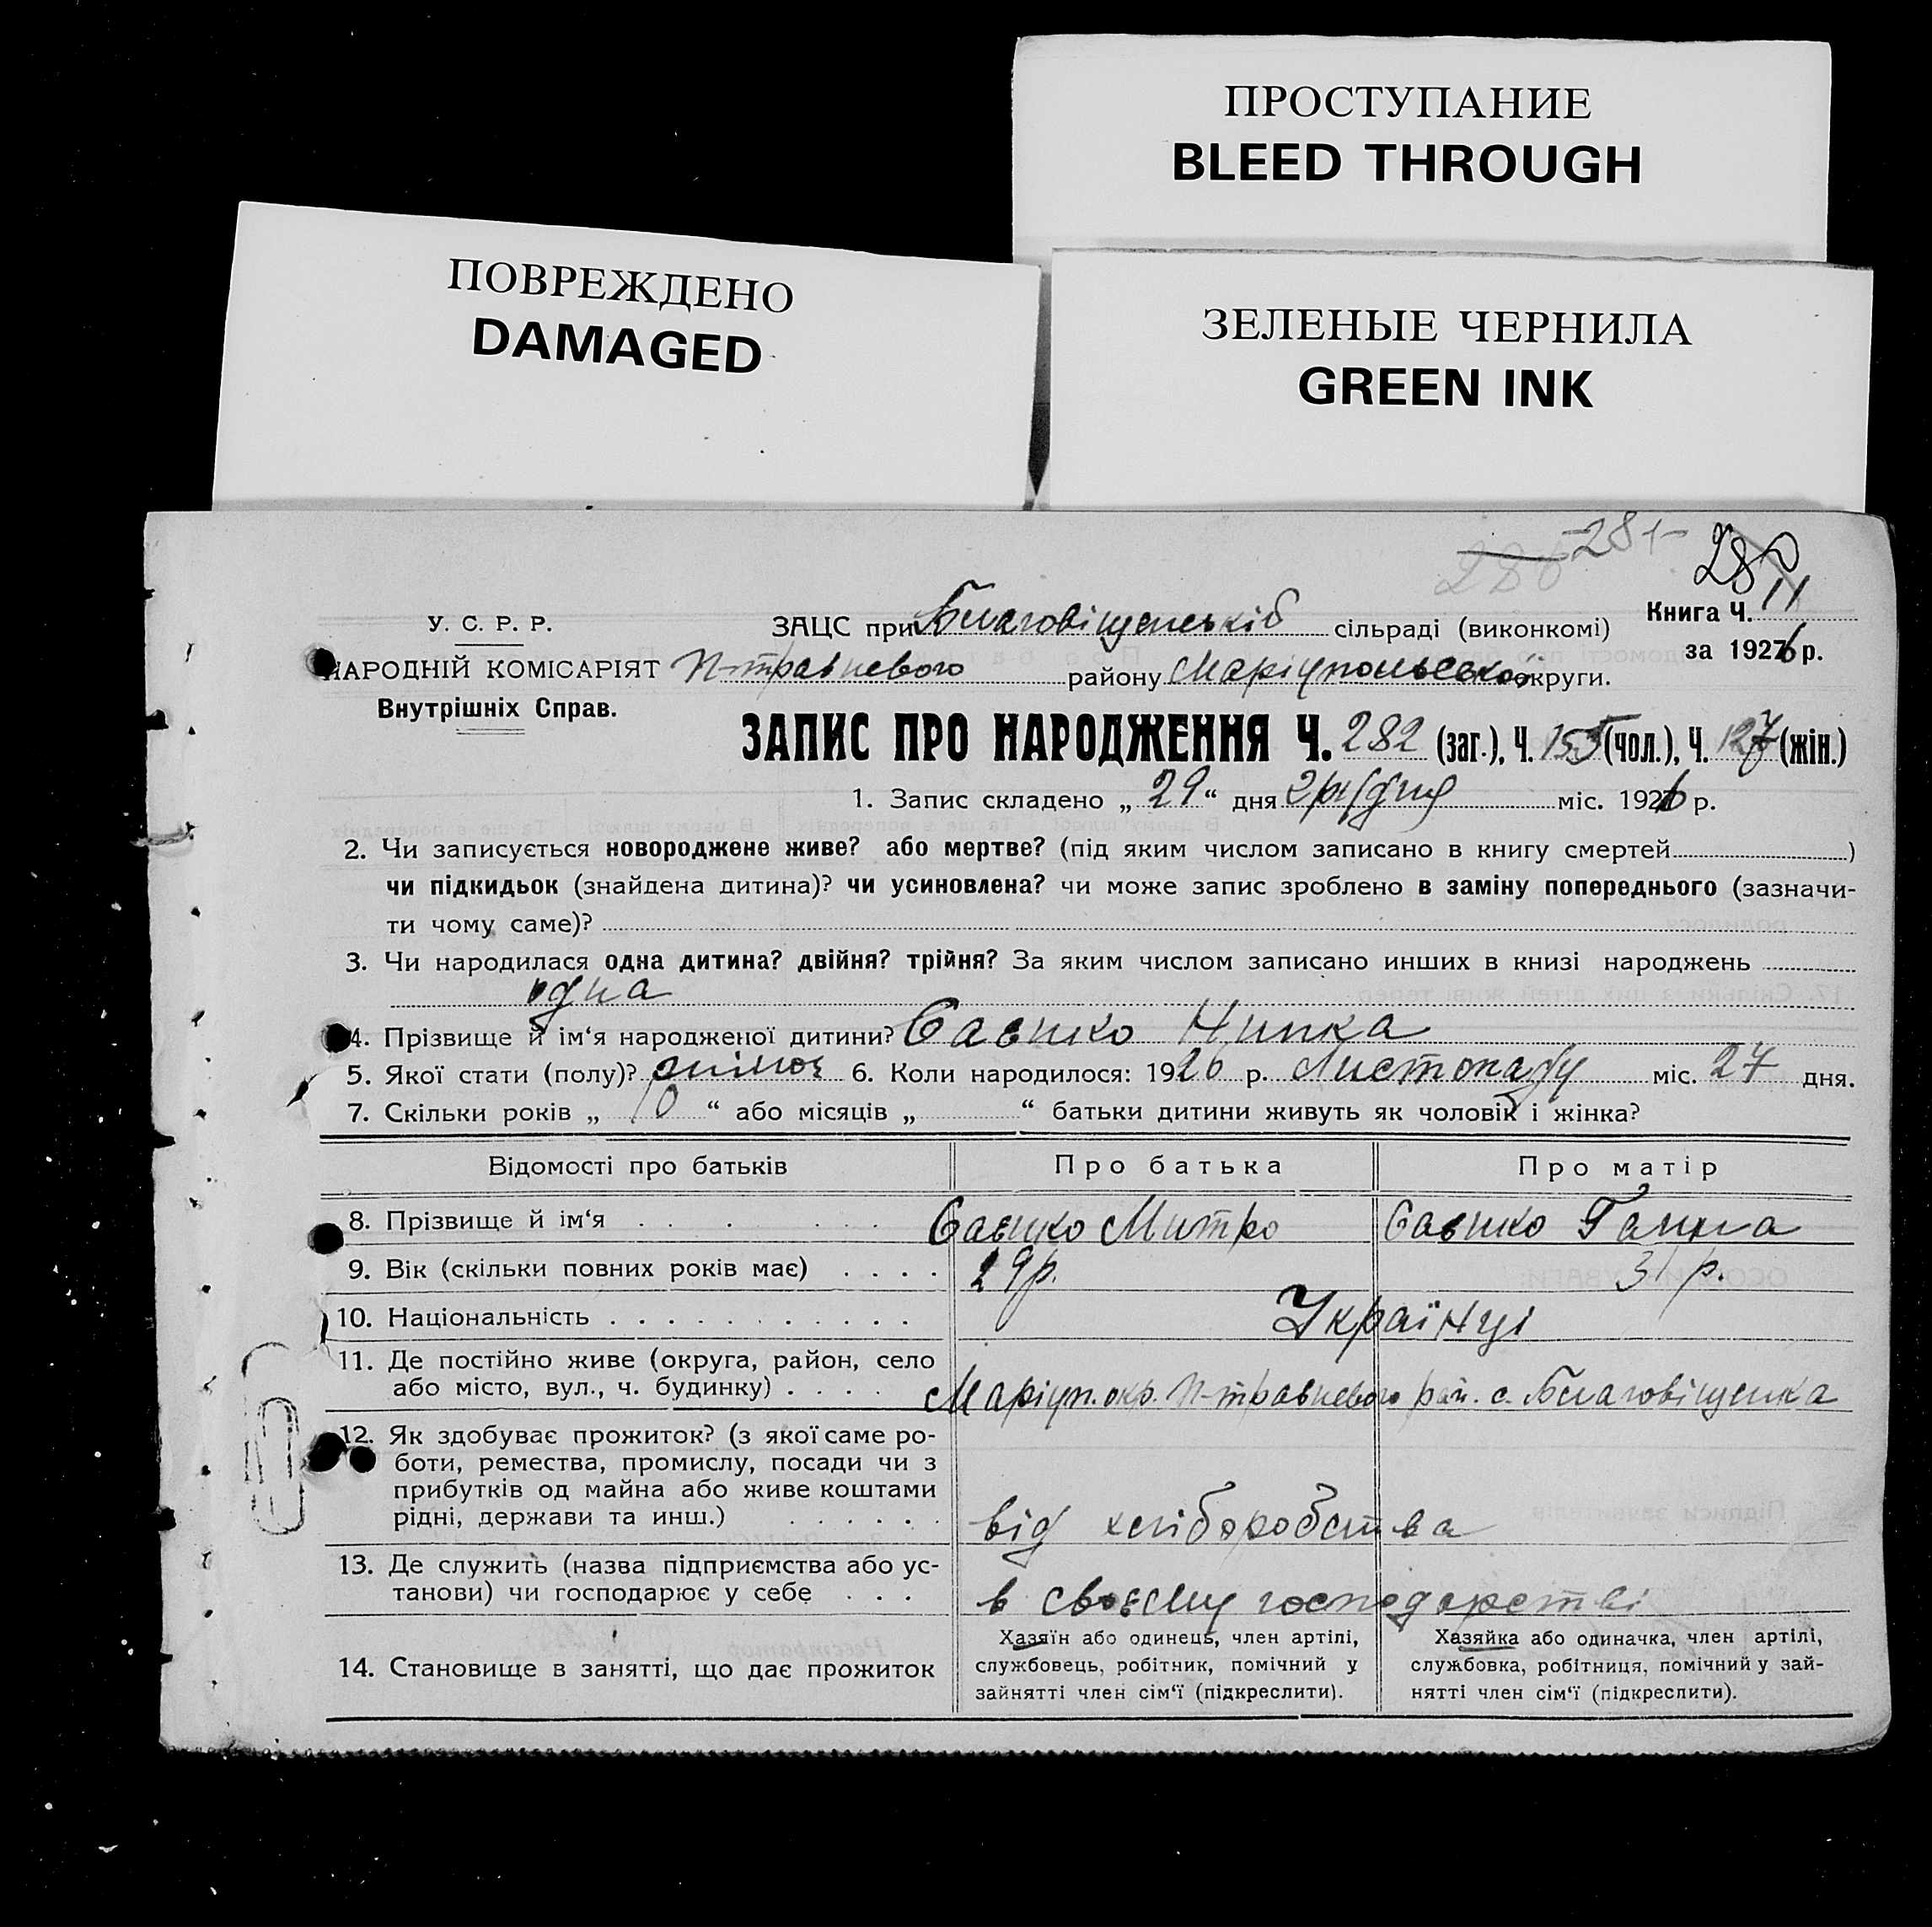 ПРОСТУПАНИЕ
BLEED THROUGH
ПОВРЕЖДЕНО
DAMAGED
ЗЕЛЕНЫЕ ЧЕРНИЛА
GREEN INK
286 281 280
У. С. Р. Р.
НАРОДНІЙ КОМІСАРІЯТ
Внутрішніх Справ.
ЗАЦС при Благовіщенській сільраді (виконкомі)
П-травневого району Маріупольської округи.
Книга Ч. 11
за 1926 р.
ЗАПИС ПРО НАРОДЖЕННЯ Ч. 282 (заг.), Ч. 155 (чол.), Ч. 127 (жін.)
1. Запис складено „ 29 “ дня грудня міс. 1926 р.
2. Чи записується новороджене живе? або мертве? (під яким числом записано в книгу смертей )
чи підкидьок (знайдена дитина)? чи усиновлена? чи може запис зроблено в заміну попереднього (зазначи-
ти чому саме)?
3. Чи народилася одна дитина? двійня? трійня? За яким числом записано инших в книзі народжень
одна
4. Прізвище й ім‘я народженої дитини? Саєнко Нинка
5. Якої стати (полу)? жіноч 6. Коли народилося: 1926 р. Листопаду міс. 27 дня.
7. Скільки років „ 10 “ або місяців „ “ батьки дитини живуть як чоловік і жінка?
Відомості про батьків Про батька Про матір
8. Прізвище й ім‘я Саєнко Митро Саєнко Ганна
9. Вік (скільки повних років має) 29 р. 31 р.
10. Національність Українці
11. Де постійно живе (округа, район, село
або місто, вул., ч. будинку) Маріуп. окр. П-травневого рай. с. Благовіщенка
12. Як здобуває прожиток? (з якої саме ро-
боти, ремества, промислу, посади чи з
прибутків од майна або живе коштами
рідні, держави та инш.) від хліборобства
13. Де служить (назва підприємства або ус-
танови) чи господарює у себе в своєму господарстві
14. Становище в занятті, що дає прожиток
Хазяїн або одинець, член артілі,
службовець, робітник, помічний у
зайнятті член сім‘ї (підкреслити).
Хазяйка або одиначка, член артілі,
службовка, робітниця, помічний у зай-
нятті член сім‘ї (підкреслити).